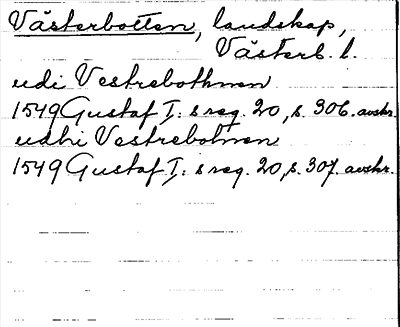 Västerbotten, landskap,
Västerb. l.
udi Vestrebothnen
1549 Gustaf I:s reg. 20, s. 306. avskr.
udhi Vestrebotnen
1549 Gustaf I:s reg. 20, s. 307. avskr.